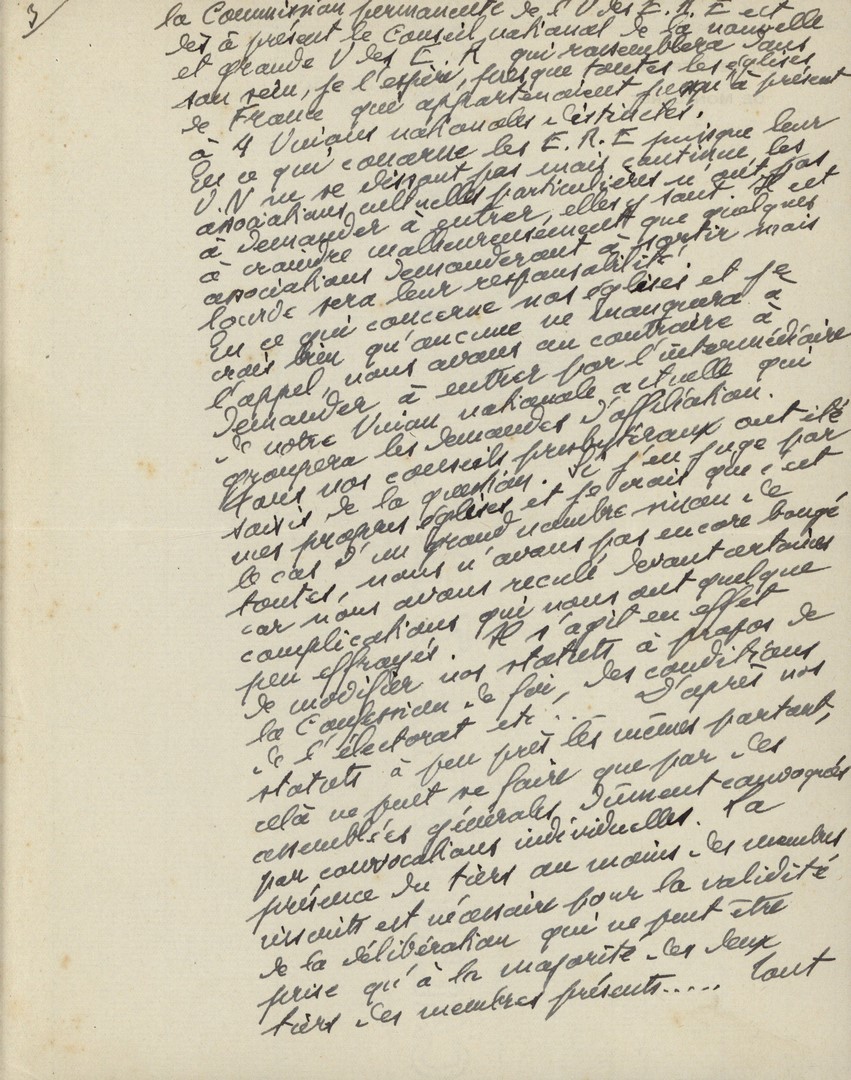 3/
la Commission permanente de l'U des E. R. E est
dès à présent le Conseil national de la nouvelle
et grande U des E. R qui rassemblera dans
son sein, je l'espère, presque toutes les églises
de France qui appartenaient jusqu'à présent
à 4 Unions nationales distinctes.
En ce qui concerne les E. R. E puisque leur
U. N ne se dissout pas mais continue, les
associations cultuelles particulières n'ont pas
à demander à entrer, elles y sont. Il est
à craindre malheureusement que quelques
associations demanderont à sortir mais
lourde sera leur responsabilité!
En ce qui concerne nos églises et je
crois bien qu'aucune ne manquera à
l'appel, nous avons au contraire à
demander à entrer par l'intermédiaire
de notre Union nationale actuelle qui
groupera les demandes d'affiliation.
Tous nos conseils presbytéraux ont été
saisis de la question. Si j'en juge par
mes propres églises et je crois que c'est
le cas d'un grand nombre sinon de
toutes, nous n'avons pas encore bougé
car nous avons reculé devant certaines
complications qui nous ont quelque
peu effrayés. Il s'agit en effet
de modifier nos statuts à propos de
la Confession de foi, des conditions
de l'électorat etc... D'après nos
statuts à peu près les mêmes partout,
celà ne peut se faire que par des
assemblées générales dûment convoquées
par convocations individuelles. La
présence du tiers au moins des membres
inscrits est nécessaire pour la validité
de la délibération qui ne peut être
prise qu'à la majorité des deux
tiers des membres présents..... Tout